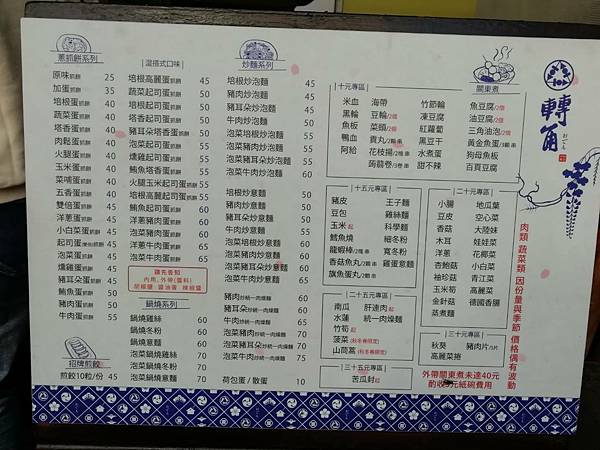 蔥抓餅系列
原味抓餅 25
加蛋抓餅 35
培根蛋抓餅 40
蔬菜蛋抓餅 40
塔香蛋抓餅 40
肉鬆蛋抓餅 40
火腿蛋抓餅 40
玉米蛋抓餅 40
菜哺蛋抓餅 40
五香蛋抓餅 40
雙倍蛋抓餅 45
洋蔥蛋抓餅 40
小白菜蛋抓餅 45
起司蛋抓餅 40
泡菜蛋抓餅 45
燻雞蛋抓餅 45
豬耳朵蛋抓餅 45
鮪魚蛋抓餅 50
豬肉蛋抓餅 50
牛肉蛋抓餅 55
招牌煎餃
煎餃10粒/份 45
混搭式口味
培根高麗蛋抓餅 45
蔬菜起司蛋抓餅 45
培根起司蛋抓餅
塔香起司蛋抓餅
豬耳朵塔香蛋抓餅
泡菜起司蛋抓餅
燻雞起司蛋抓餅
鮪魚塔香蛋抓餅
火腿玉米起司蛋抓餅 55
培根高麗起司蛋抓餅
鮪魚起司蛋抓餅
洋蔥豬肉蛋抓餅
泡菜豬肉蛋抓餅 60
洋蔥牛肉蛋抓餅 65
泡菜牛肉蛋抓餅 65
請先告知
內用、外帶(醬料)
胡椒鹽 醬油膏 辣椒醬
鍋燒系列
鍋燒雞絲 60
鍋燒冬粉 60
鍋燒意麵 60
泡菜鍋燒雞絲 70
泡菜鍋燒冬粉 70
泡菜鍋燒意麵 70
炒麵系列
培根炒泡麵 45
豬肉炒泡麵
豬耳朵炒泡麵
牛肉炒泡麵
泡菜培根炒泡麵
泡菜豬肉炒泡麵
泡菜豬耳朵炒泡麵
泡菜牛肉炒泡麵
培根炒意麵
豬肉炒意麵
豬耳朵炒意麵
牛肉炒意麵
泡菜培根炒意麵
泡菜豬肉炒意麵
泡菜豬耳朵炒意麵
泡菜牛肉炒意麵 65
豬肉炒統一肉燥麵 60
豬耳朵炒統一肉燥麵
牛肉炒統一肉燥麵 65
泡菜豬肉炒統一肉燥麵 70
泡菜豬耳朵炒統一肉燥麵
泡菜牛肉炒統一肉燥麵 75
荷包蛋 / 散蛋 10
關東煮
十元專區
米血 海帶 竹節輪 魚豆腐/2個
黑輪 豆輪/2個 凍豆腐 油豆腐/2個
魚板 菜頭/2個 紅蘿蔔 三角油泡/2個
鴨血 貢丸/2顆 黑豆干 黃金魚蛋/3顆 串
阿給 花枝揚/2塊 串 水煮蛋 狗母魚板
蒟蒻卷/3卷 串 甜不辣 百頁豆腐
十五元專區
豬皮 王子麵
豆包 雞絲麵
玉米起 科學麵
鱈魚燒 細冬粉
龍蝦棒/2條 串 寬冬粉
香菇魚丸/2顆 串 雞蛋意麵
旗魚蛋丸/2顆 串
二十元專區
小腸 地瓜葉
豆皮 空心菜
香菇 大陸妹
木耳 娃娃菜
洋蔥 花椰菜
杏鮑菇 小白菜
袖珍菇 青江菜
玉米筍 高麗菜
金針菇 德國香腸
蒸煮麵
二十五元專區
南瓜 肝連肉起
水蓮 統一肉燥麵
竹筍起
菠菜(秋冬春限定)
山茼蒿(秋冬春限定)
三十元專區
秋葵 豬肉片/5片
高麗菜捲
三十五元專區
苦瓜封起
外帶關東煮未達40元
酌收3元紙碗費用
肉類 蔬菜類 因份量與季節 價格偶有波動
轉角
おでん